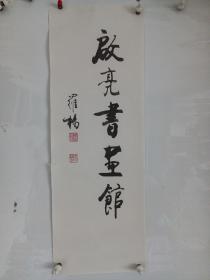 啟亮書畫館
羅楊